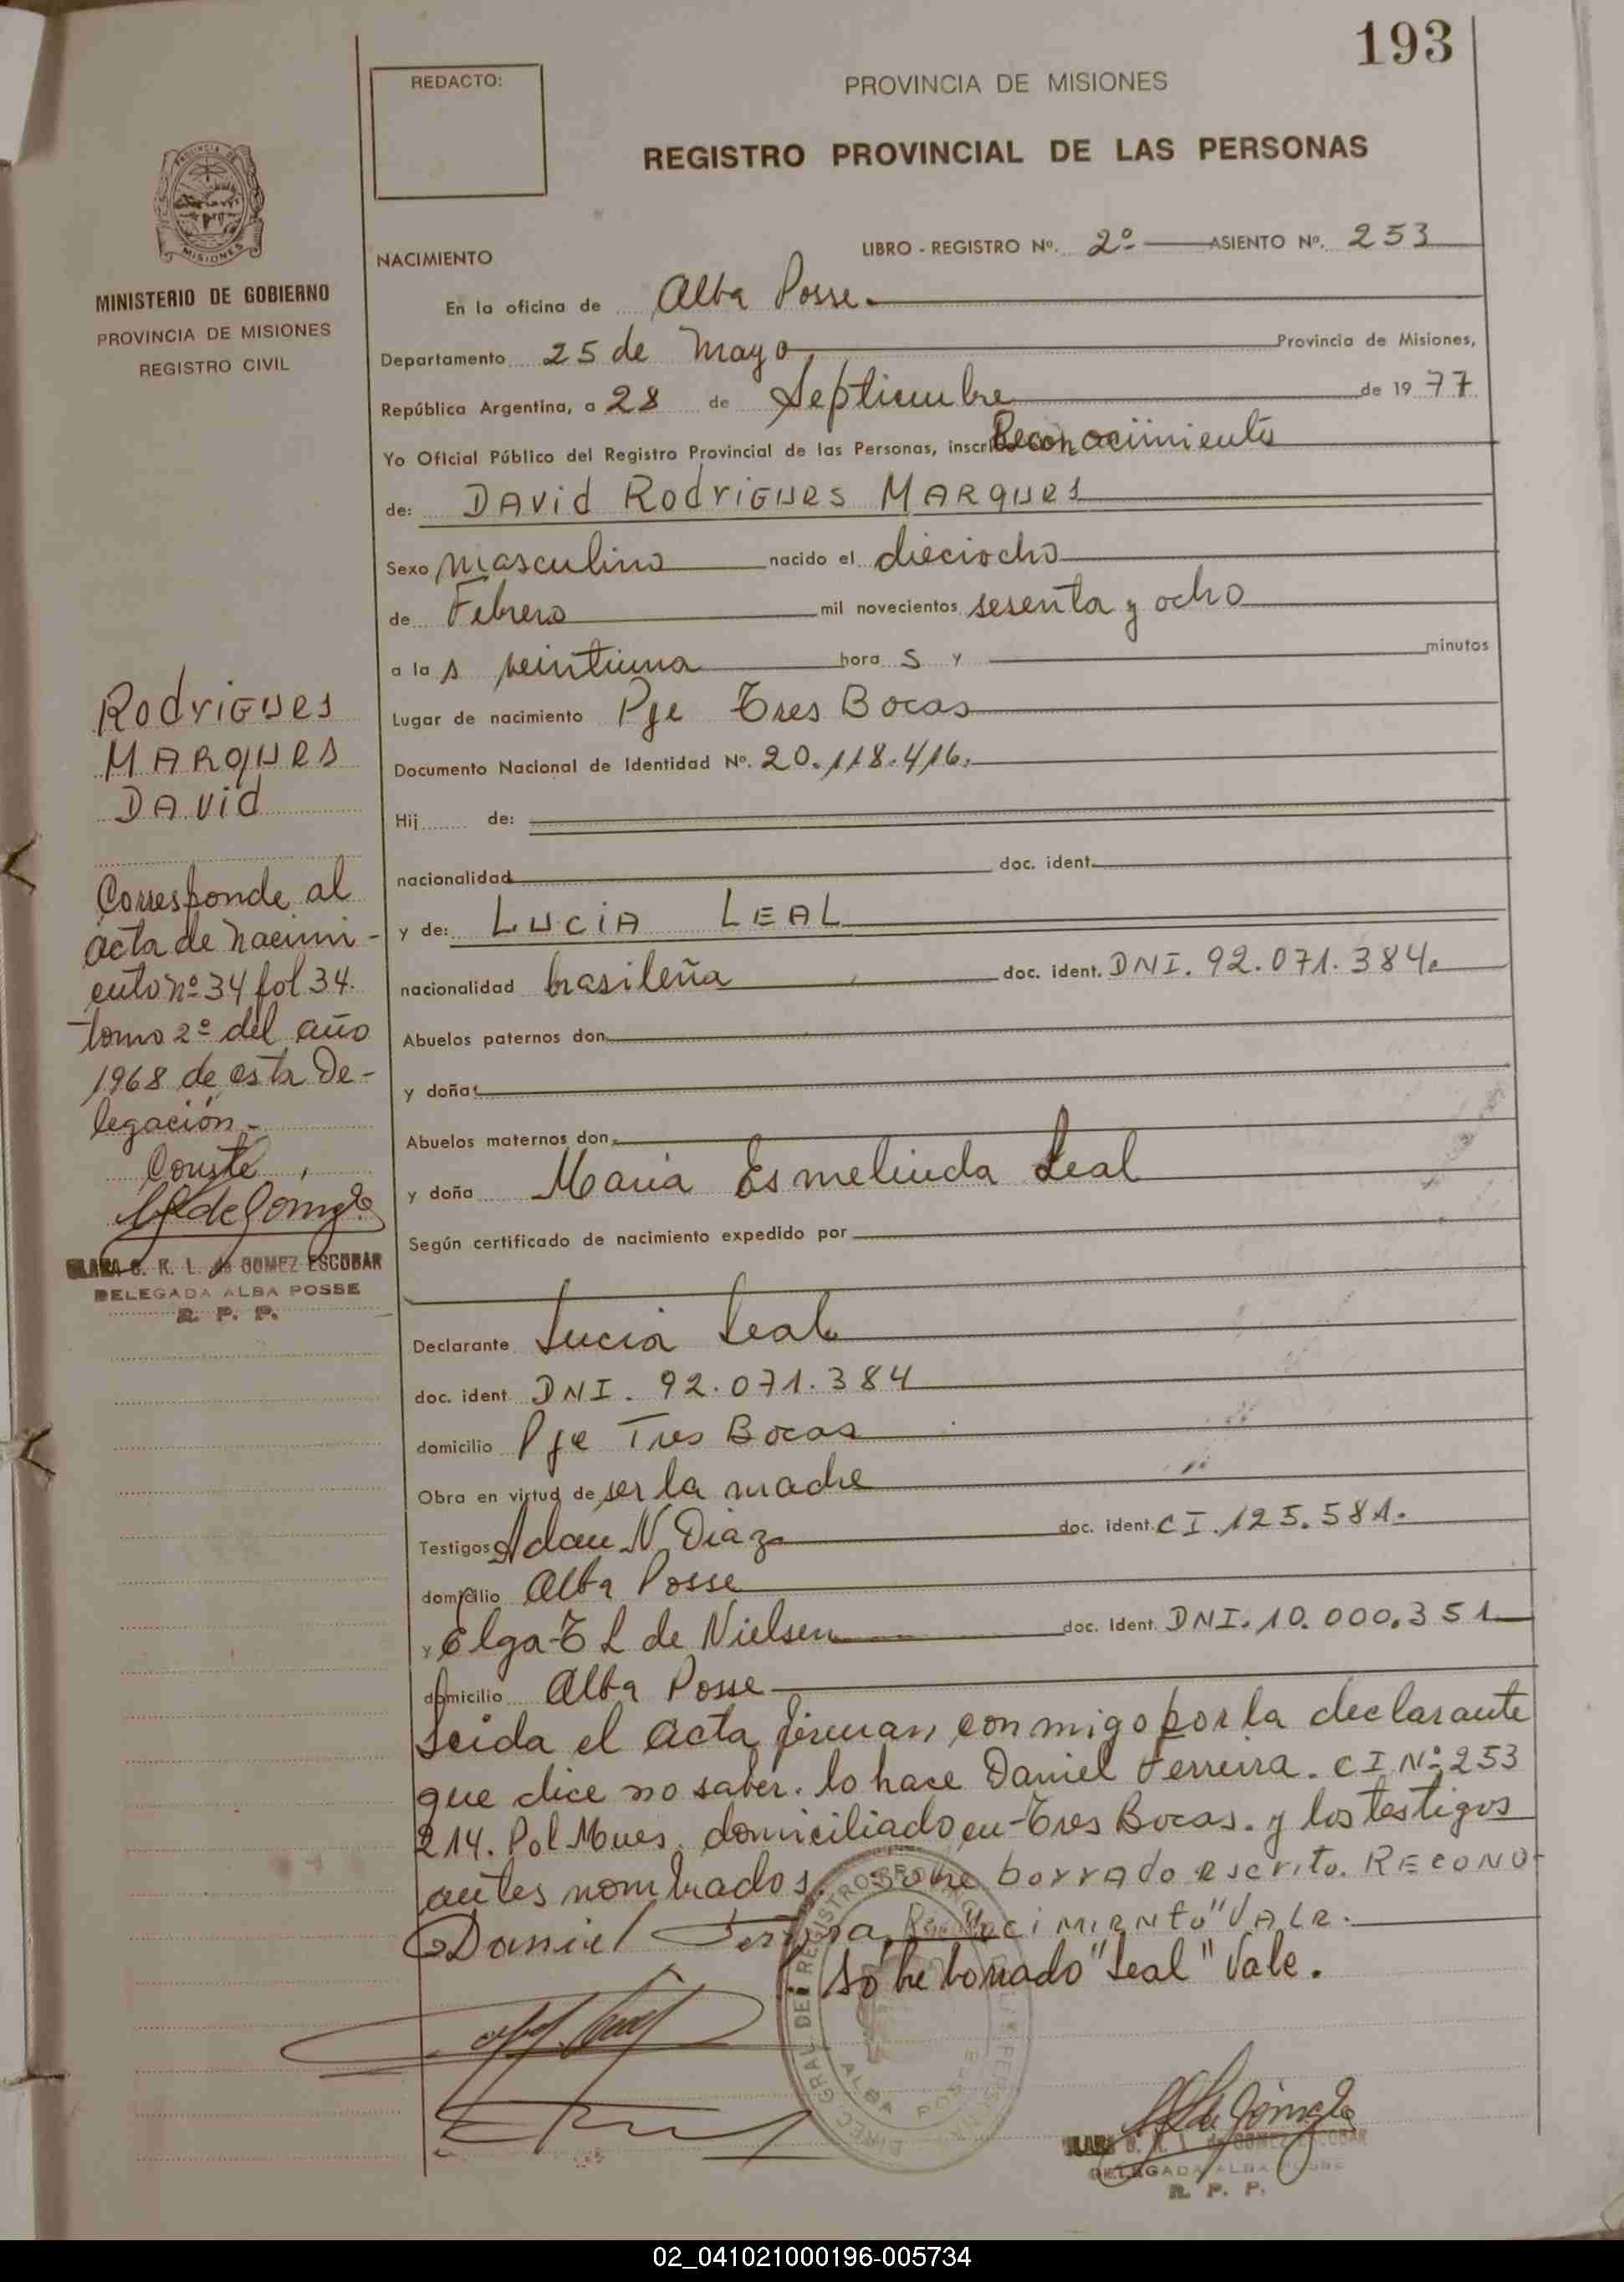 193
REDACTO:
PROVINCIA DE MISIONES
REGISTRO PROVINCIAL DE LAS PERSONAS
MINISTERIO DE GOBIERNO
PROVINCIA DE MISIONES
REGISTRO CIVIL
NACIMIENTO
LIBRO - REGISTRO Nº. 2º ASIENTO Nº. 253
En la oficina de Alba Posse.
Departamento 25 de Mayo Provincia de Misiones,
República Argentina, a 28 de Septiembre de 1977
Yo Oficial Público del Registro Provincial de las Personas, inscribo Reconocimiento
de: DAVid RodriGues MARques
Sexo masculino nacido el dieciocho
de Febrero mil novecientos sesenta y ocho
a la s veintiuna hora s y minutos
Lugar de nacimiento Pje Tres Bocas
Documento Nacional de Identidad Nº. 20.118.416.
Hij de:
nacionalidad doc. ident.
y de: LuciA LEAL
nacionalidad brasileña doc. ident. DNI. 92.071.384.
Abuelos paternos don
y doña
Abuelos maternos don
y doña Maria Esmelinda Leal
Según certificado de nacimiento expedido por
Declarante Lucia Leal
doc. ident. DNI. 92.071.384
domicilio Pje Tres Bocas
Obra en virtud de ser la madre
Testigos Adan N Diaz doc. ident. CI. 125.581.
domicilio Alba Posse
y Elga T L de Nielsen doc. Ident. DNI. 10.000.351
domicilio Alba Posse
Leida el acta firman conmigo por la declarante
que dice no saber. lo hace Daniel Ferreira. CI Nº 253
214. Pol Mnes. domiciliado en Tres Bocas. y los testigos
antes nombrados. Sobre borrado escrito. RECONO-
Daniel Ferreira ciMieNto" VALe.
So bre borrado "Leal" Vale.
RodriGues
MARques
DAvid
Corresponde al
acta de nacimi-
ento nº 34 fol 34.
tomo 2º del año
1968 de esta De-
legación.-
Conste,
CLARA G. R. L. de GOMEZ ESCOBAR
DELEGADA ALBA POSSE
R. P. P.
ALBA POSSE
CLARA G. R. L. de GOMEZ ESCOBAR
DELEGADA ALBA POSSE
R. P. P.
02_041021000196-005734